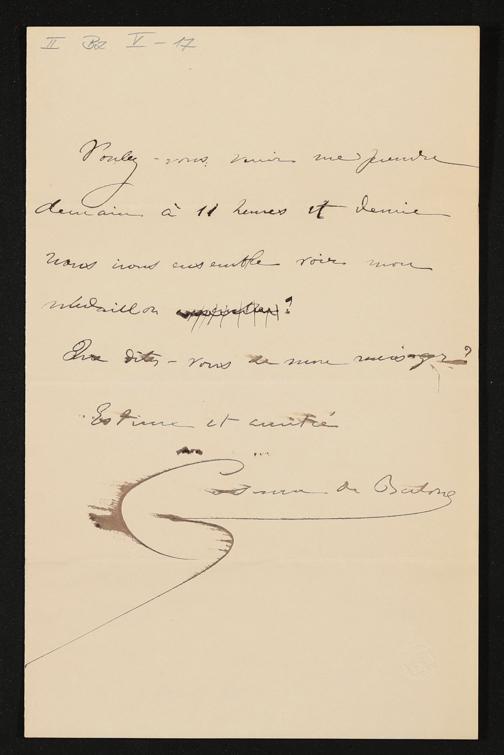 II Bz V - 17
Voulez-vous venir me prendre
demain à 11 heures et demie
nous irons ensemble voir mon
médaillon ?
Que dites-vous de mon ?
Estime et amitié
de